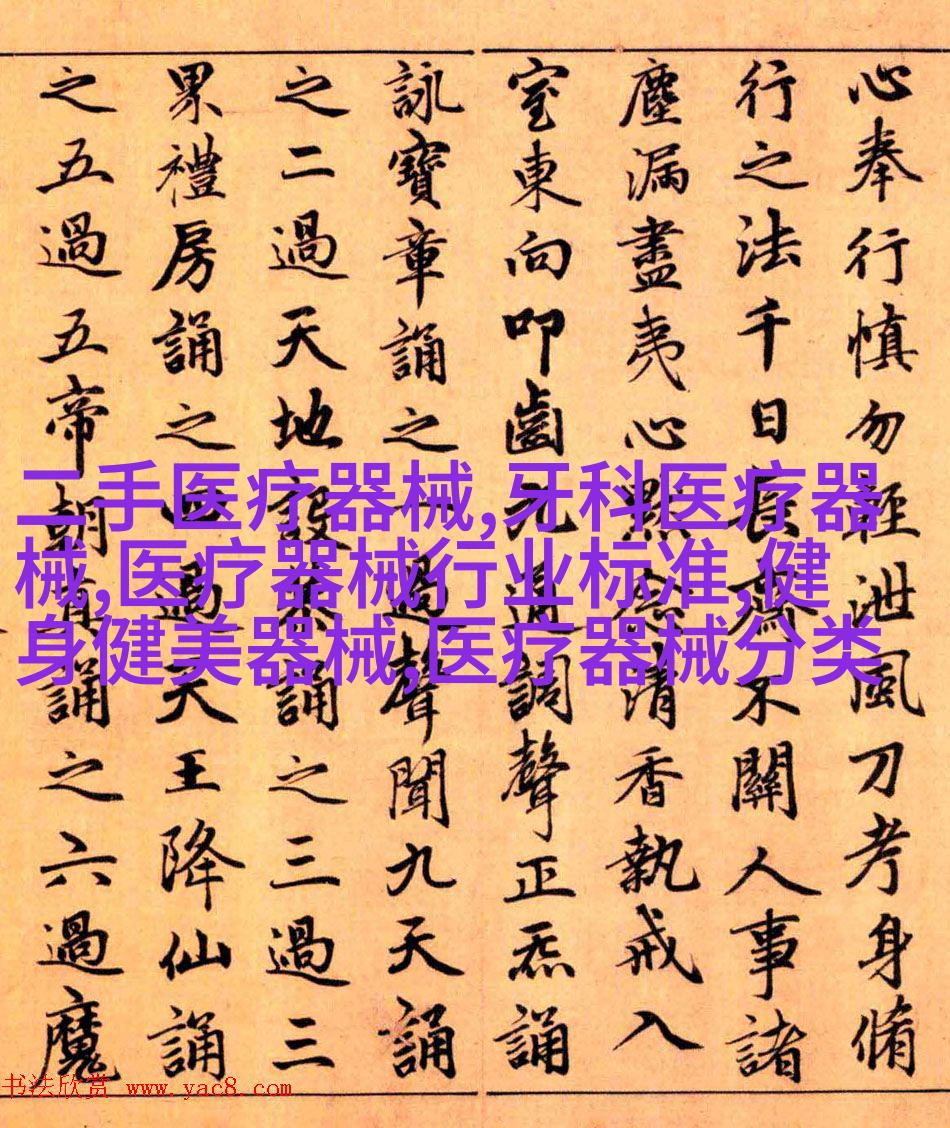 心奉行慎勿輕泄風刀考身脩
行之法千日長齋不關人事諸
塵漏盡夷心默念清香執戒入
室東向叩齒九通調聲正炁誦
詠寶章誦之一過聲聞九天誦
之二過天地設恭誦之三過三
界禮房誦之四過天王降仙誦
之五過五帝朝真誦之六過魔
二手医疗器械,牙科医疗器
械,医疗器械行业标准,健
身健美器械,医疗器械分类
书法欣赏 www.yac8.com